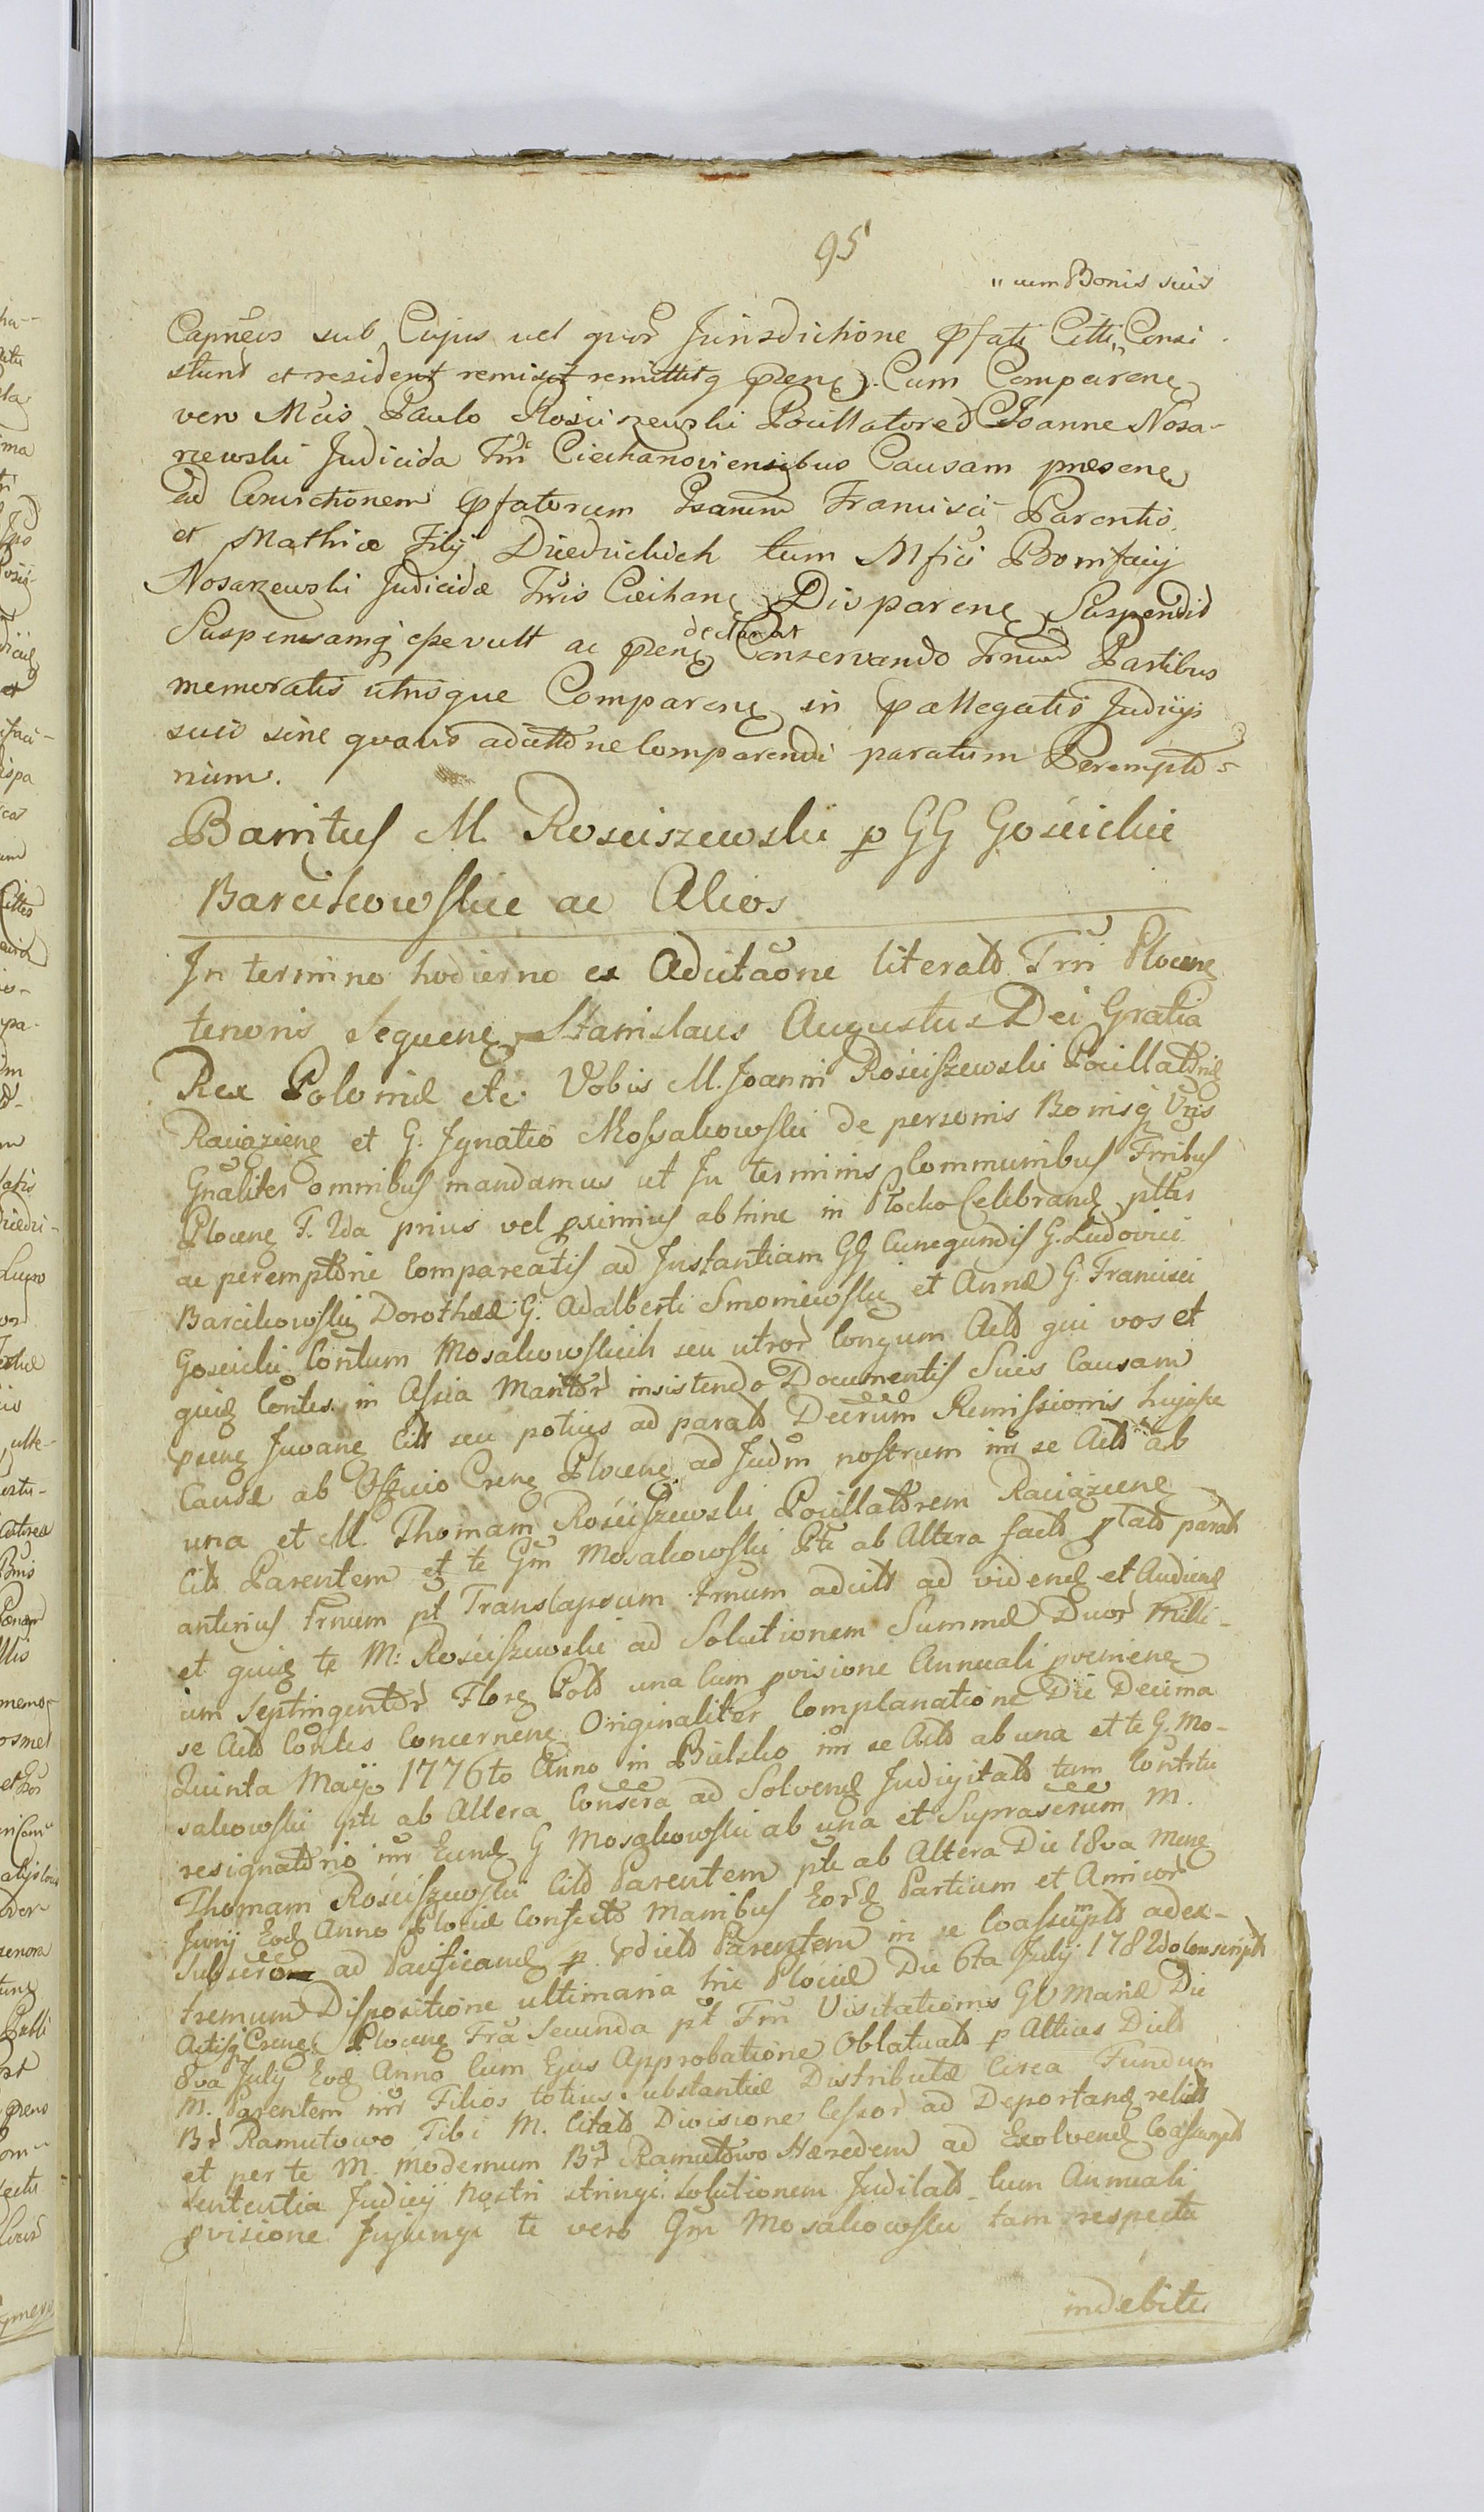 95
" cum Bonis suis
Capneos sub Cujus vel quor Jurisdictione pfati Citti " Consi
stunt et resident remisit remittitq pens. Cum Comparene
vero Mcis Paulo Rosciszewski Pocillatore Joanne Nosa-
rzewski Judicida Tri Ciechanoviensibus Causam praesene
ad Evictionem pfatorum Francisci Parentis
et Mathiae Filij Dziedzickich tum Mfici Bonifacij
Nosarzewski Judicidae Tris Ciechane Disparene Suspendit
Suspensamq esse vult ac pens declarat Conservando Trnum Partibus
memoratis utrisque Comparene in pallegatis Judicijs
suis sine quavis adcittone Comparendi paratum Perempto=
rium.
Bannitus M. Rosciszewski p GG Gościckie
Barcikowskie ac Alios
In termino hodierno ex Adcitaone literato Trri Plocene
tenoris Sequene Stanislaus Augustus Dei Gratia
Rex Poloniae etc. Vobis M. Joanni Rościszewski Pocillatori
Raciąziene et G. Ignatio Mossakowski de personis Bonisq Vris
Gnaliter omnibus mandamus ut In terminis Communibus Trribus
Plocene F. 2da prius vel pximius abhinc in Płocko Celebrand pttr
ac peremptorie Compareatis ad Instantiam GG Cunegundis G. Ludovici
Barcikowski Dorotheae G. Adalberti Smoniewski et Annae G. Francisci
Goscicki Contum Mosakowskich seu utror Congum Acto qui vos et
quid Contes in Assia Maritor insistendo Documentis Suis Causam
psene Juvane Citt seu potius ad parato Decrum Remissionis hujuse
Causae ab Officio Crene Plocene ad Judm nostrum inr se Acto ab
una et M. Thomam Rościszewski Pocillatorem Raciąziene
Citt Parentem et te Gm Mosakowski Pte ab Altera facto parat
anterius Trnum pt Translapsum trnum adcitt ad videnę et Audienę
et quię te M. Rościszewski ad Solutionem Summae Duor Milli-
um Septingentor Flore Polo una Cum pvisione Annuali pveniene
se Acto Contes Concernene Originaliter Complanatione Die Decima
Quinta Maij 1776to Anno in Bielsko inr se Acto ab una et te G. Mo-
sakowski pte ab Altera Conscra ad Solvenę Judigitato tum Contrtu
resignatorio inr Eunę G Mosakowski ab una et Suprascrum M.
Thomam Rościszewski Cito Parentem pte ab Altera Die 18va Mene
Junij Eoę Anno Plociae Confecto Manibus Eorę Partium et Amicor
Subscro ad Pacificanę p pdicto Parentem in se Coassumpto adex-
tremum Dispositione ultimaria hic Plociae Die 6ta Julij 1782do Conscripto
Actisq Crene Plocene Fra Secunda pt Fm Visitationis GVMariae Die
8va July Eoę Anno Cum Ejus Approbatione Oblatuato p Altius Dicto
M. Parentem inr Filios totius substantiae Distributae Circa Fundum
Br Ramutowo Tibi M. Citato Divisione Cessor ad Deportanę relicto
et per te M. modernum Br Ramutowo Haeredem ad Exolvenę Coassumpto
Sententia Judicij Nostri stringi Solutionem Judicato Cum Annuali
pvisione Injungi te vero Gm Mosakowski tam respectu
indebite